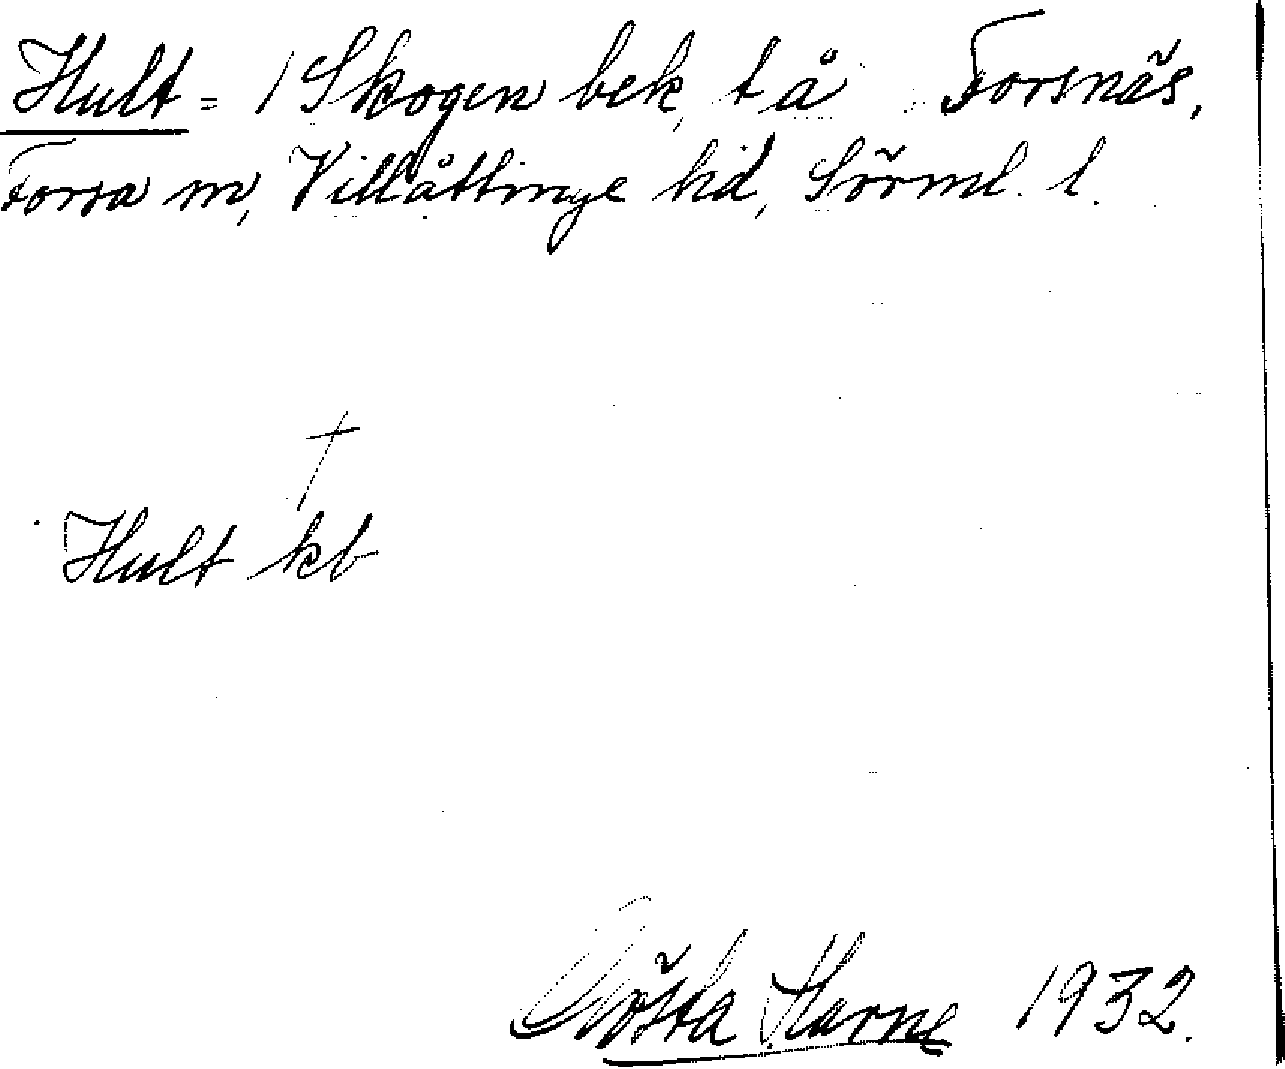 Hult = 1 Skogen bek, t å Forsnäs,
Forsa sn, Villåttinge hd, Sörml. l.
†
Hult kb
Gösta Harne 1932.